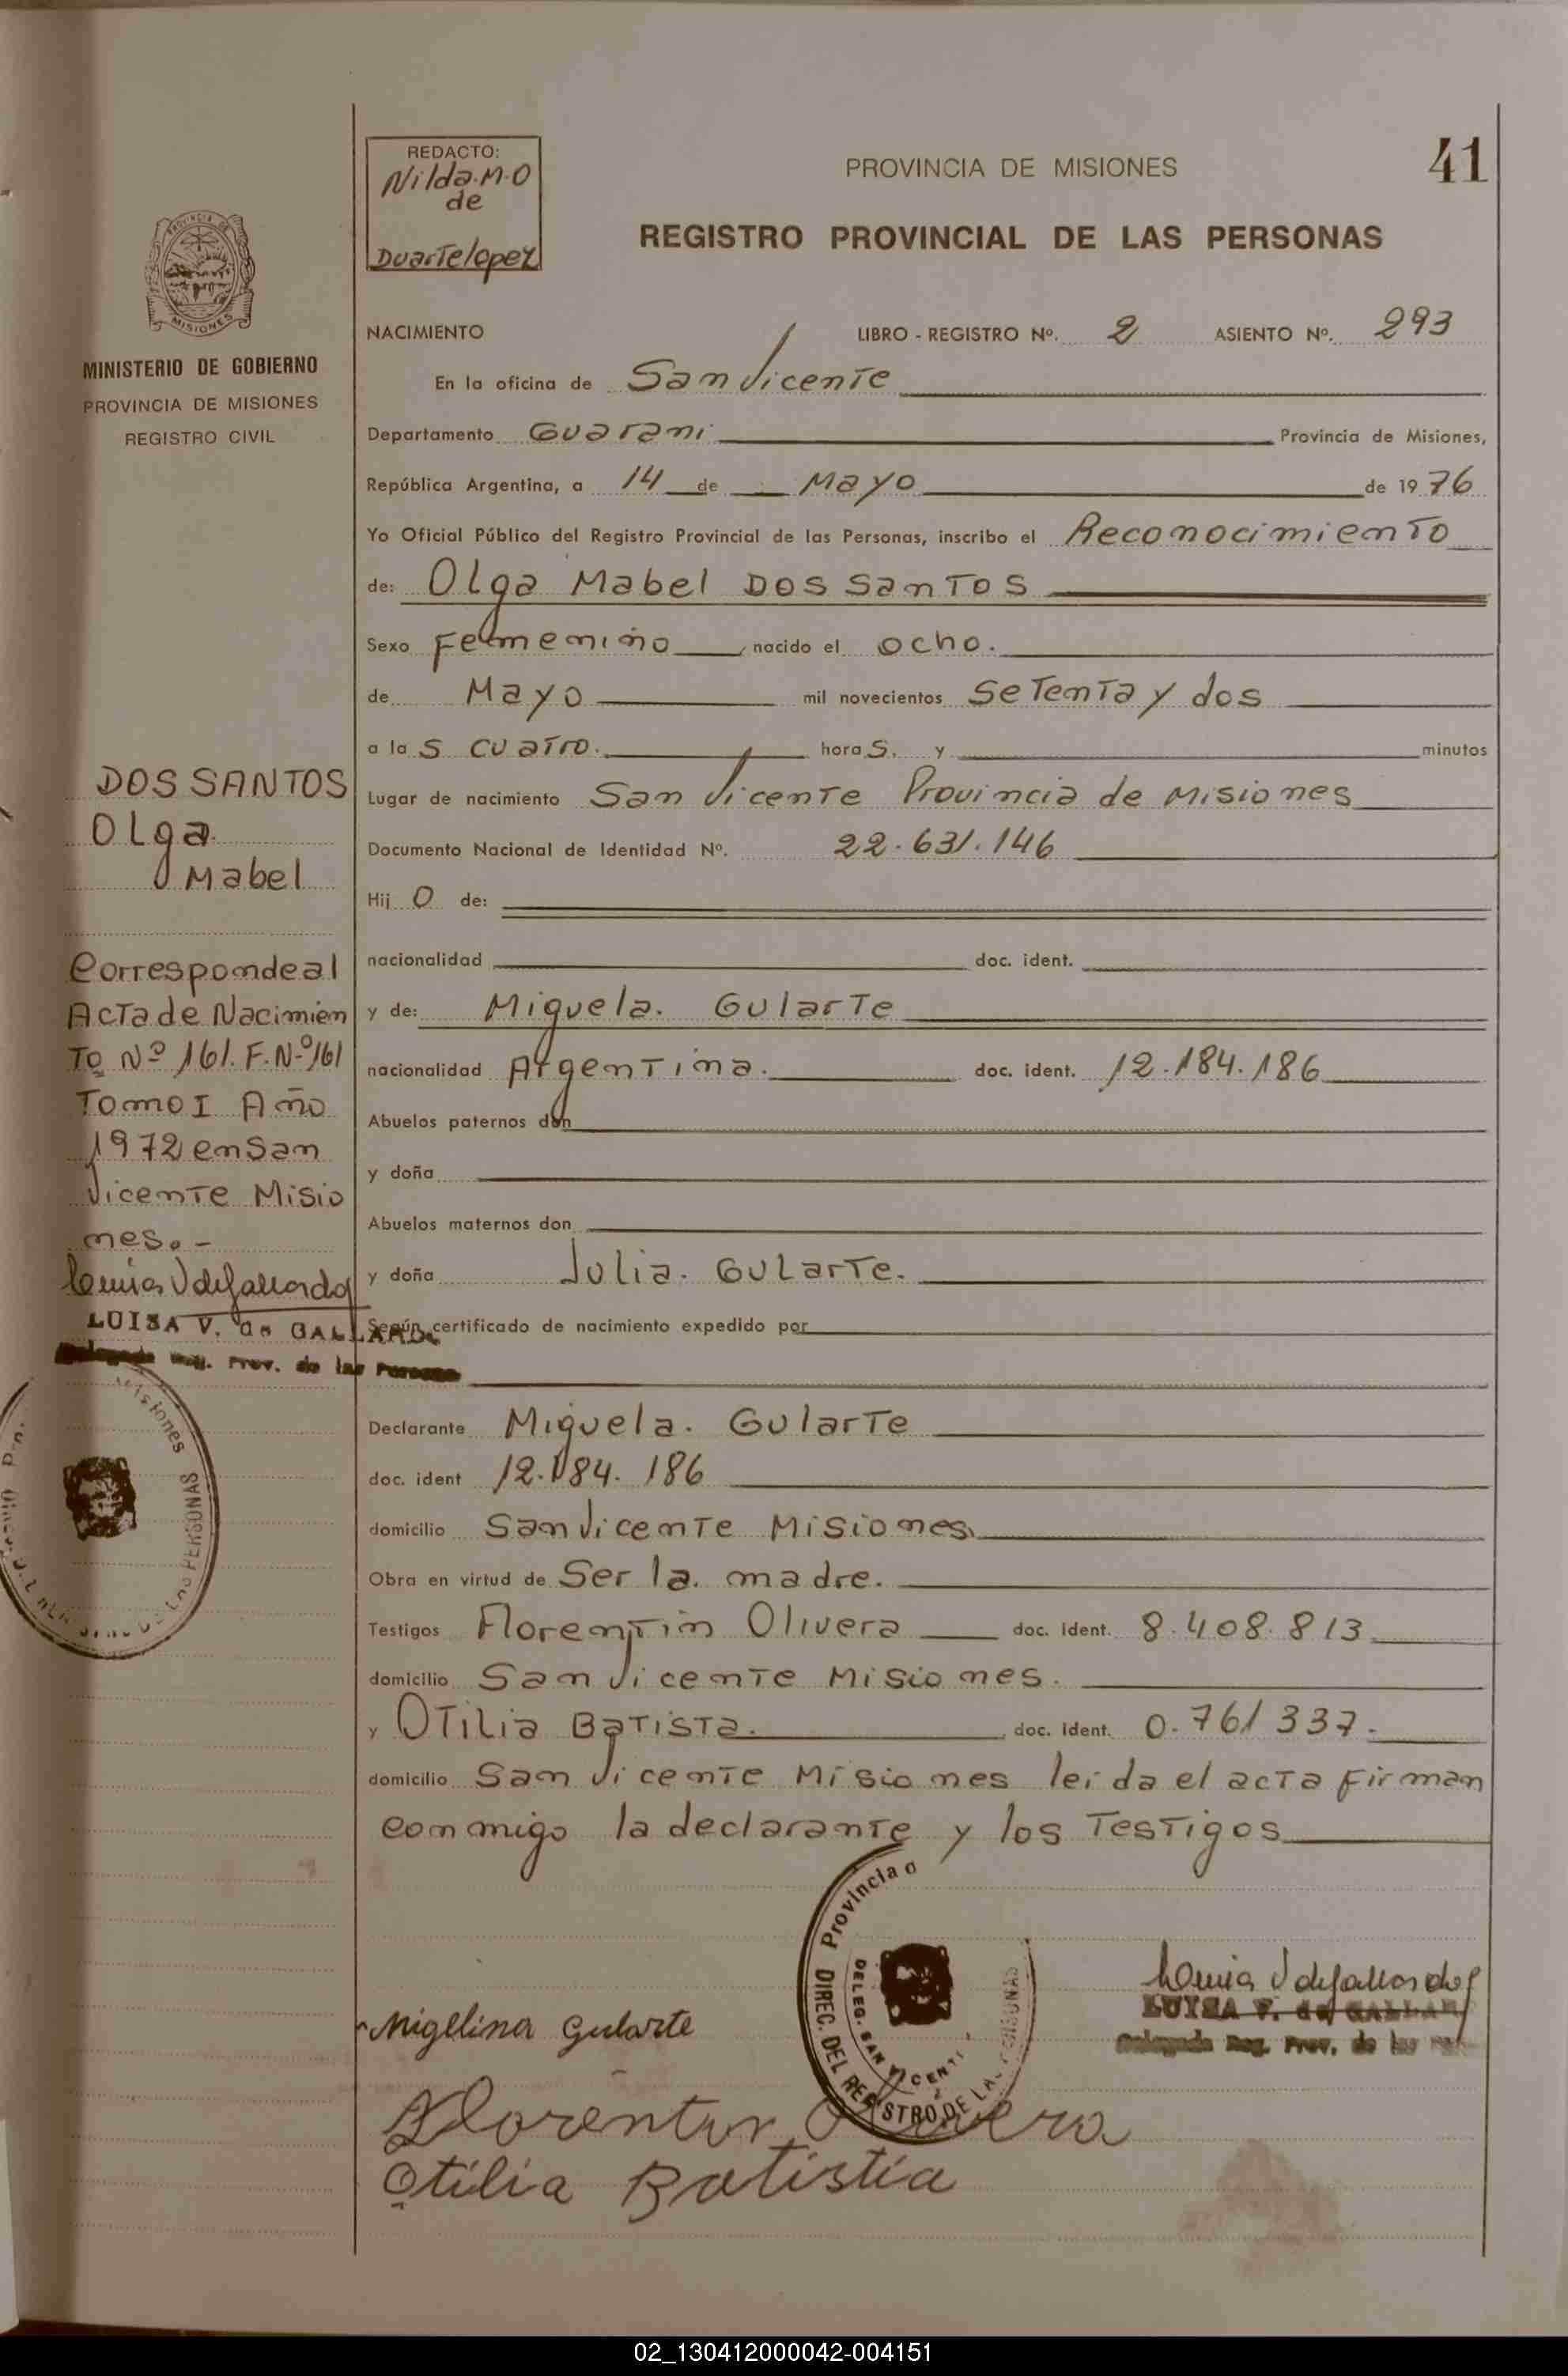 REDACTO:
Nilda.M.O
de
Duartelopez
PROVINCIA DE MISIONES
41
REGISTRO PROVINCIAL DE LAS PERSONAS
MISIONES
MINISTERIO DE GOBIERNO
PROVINCIA DE MISIONES
REGISTRO CIVIL
NACIMIENTO LIBRO - REGISTRO Nº. 2 ASIENTO Nº. 293
En la oficina de San Vicente
Departamento Guarani Provincia de Misiones,
República Argentina, a 14 de Mayo de 1976
Yo Oficial Público del Registro Provincial de las Personas, inscribo el Reconocimiento
de: Olga Mabel DOS SanTOS
Sexo Femenino nacido el ocho.
de Mayo mil novecientos setenta y dos
a las cuatro. horas. y minutos
Lugar de nacimiento San Vicente Provincia de Misiones
Documento Nacional de Identidad Nº. 22.631.146
Hijo de:
nacionalidad doc. ident.
y de: Miguela. Gularte
nacionalidad Argentina. doc. ident. 12.184.186
Abuelos paternos don
y doña
Abuelos maternos don
y doña Julia. Gularte.
Según certificado de nacimiento expedido por
Declarante Miguela. Gularte
doc. ident 12.184.186
domicilio San Vicente Misiones
Obra en virtud de Ser la. madre.
Testigos Florentin Olivera doc. ident. 8.408.813
domicilio San Vicente Misiones.
y Otilia Batista. doc. ident. 0.761337.
domicilio San Vicente Misiones leida el acta firman
conmigo la declarante y los Testigos
DOS SANTOS
Olga
Mabel
Corresponde al
Acta de Nacimien
To Nº 161. F. Nº 161
Tomo I Año
1972 en San
Vicente Misio
nes.-
Luisa V de Gallardo
LUISA V. de GALLARDO
Delegada Reg. Prov. de las Personas
Misiones
LAS PERSONAS
Provincia d
DIREC. DEL REGISTRO DE LAS PERSONAS
DELEG. SAN VICENTE
Luisa V de Gallardo
LUISA V. de GALLAR
Delegada Reg. Prov. de las Per
Migelina Gularte
Florentin Olivera
Otilia Batistia
02_130412000042-004151